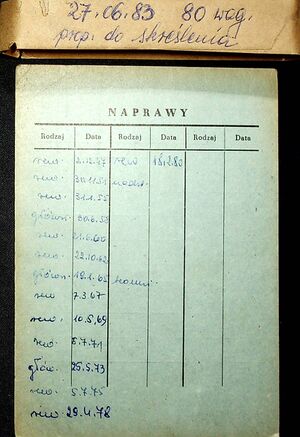 27.06.83 80 wag.
prop. do skreślenia
NAPRAWY
Rodzaj Data Rodzaj Data Rodzaj Data
rew. 2.12.47 rew 18.2.80
rew. 30.11.51
rew. 31.1.55
główn. 30.6.58
rew. 21.6.60
rew. 22.10.62
główn. 19.1.65
rew 7.3.67
rew. 10.5.69
rew. 5.7.71
głów. 25.5.73
rew. 5.7.75
rew. 29.4.78